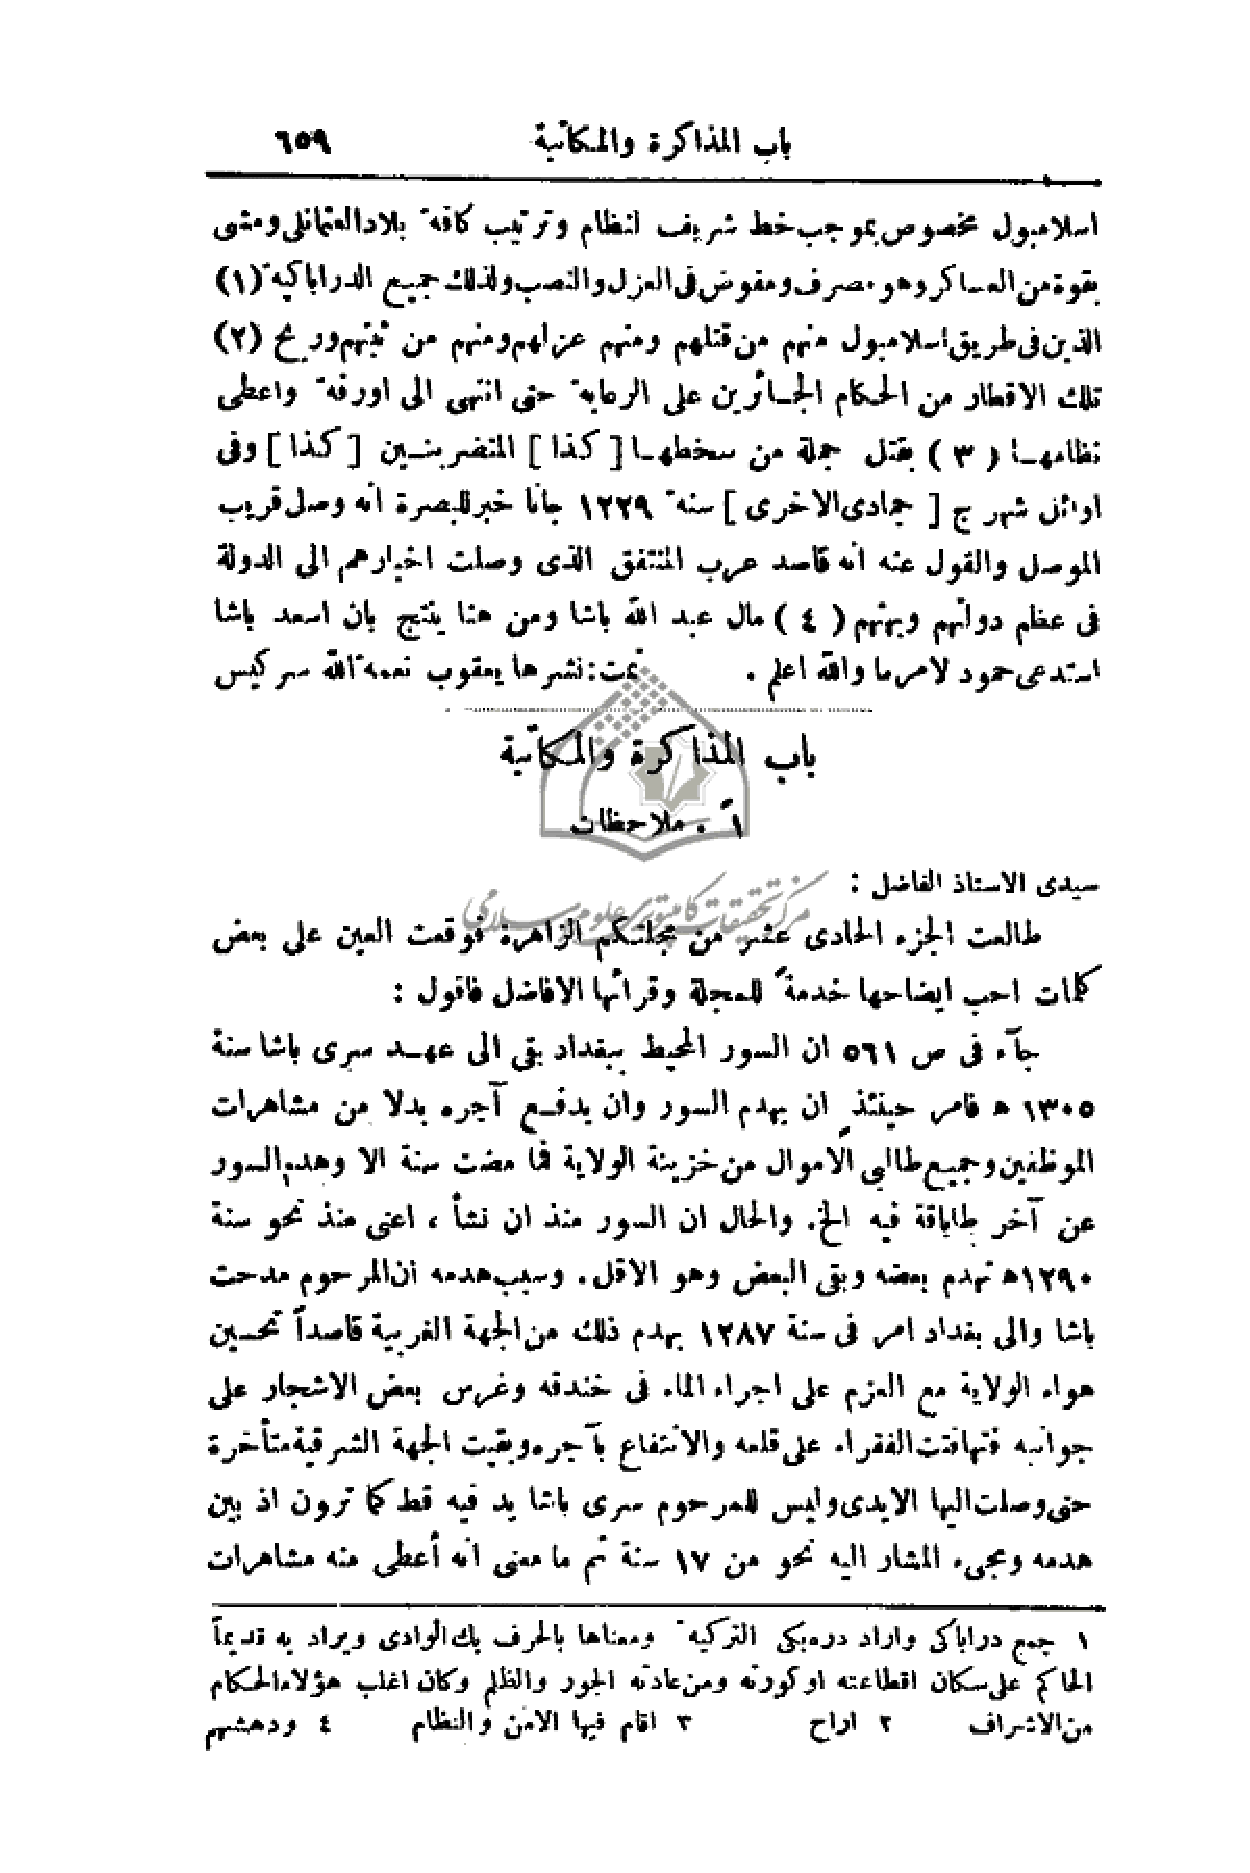 باب المذاكرة والمكاتبة ٦٥٩
اسلامبول مخصوص بموجب خط شريف لنظام وترتيب كافة بلاد العثمانلى ومشى
بقوة من العساكر وهو مصرف ومفوض فى العزل والنصب ولذلك جميع الدراباكية (١)
الذين فى طريق اسلامبول منهم من قتلهم ومنهم عزلهم ومنهم من ثبتهم وريح (٢)
تلك الاقطار من الحكام الجائرين على الرعاية حتى انتهى الى اورفة واعطى
نظامها (٣) بقتل جملة من سخطها [كذا] المتضربنين [كذا] وفى
اوائل شهر ج [جمادى الاخرى] سنة ١٢٢٩ جانا خبر للبصرة انه وصل قريب
الموصل والقول عنه انه قاصد عرب المنتفق الذى وصلت اخبارهم الى الدولة
فى عظم دولتهم وبهتهم (٤) مال عبد الله باشا ومن هنا ينتج بان اسعد باشا
استدعى حمود لامر ما والله اعلم . تمت: نشرها يعقوب نعمة الله سركيس
باب المذاكرة والمكاتبة
١ً . ملاحظات
مركز تحقيقات كامپيوترى علوم اسلامى
سيدى الاستاذ الفاضل :
طالعت الجزء الحادى عشر من مجلتكم الزاهرة فوقعت العين على بعض
كلمات احب ايضاحها خدمةً للمجلة وقرائها الافاضل فاقول :
جآء فى ص ٥٦١ ان السور المحيط ببغداد بقى الى عهد سرى باشا سنة
١٣٠٥ ه فامر حينئذٍ ان يهدم السور وان يدفع آجره بدلا من مشاهرات
الموظفين وجميع طالبى الاموال من خزينة الولاية فما مضت سنة الا وهدم السور
عن آخر طاباقة فيه الخ. والحال ان السور منذ ان نشأ ، اعنى منذ نحو سنة
١٢٩٠ه تهدم بعضه وبقى البعض وهو الاقل. وسبب هدمه ان المرحوم مدحت
باشا والى بغداد امر فى سنة ١٢٨٧ بهدم ذلك من الجهة الغربية قاصداً تحسين
هواء الولاية مع العزم على اجراء الماء فى خندقه وغرس بعض الاشجار على
جوانبه فتهافتت الفقراء على قلعه والانتفاع بآجره وبقيت الجهة الشرقية متأخرة
حتى وصلت اليها الايدى وليس للمرحوم سرى باشا يد فيه قط كما ترون اذ بين
هدمه ومجىء المشار اليه نحو من ١٧ سنة ثم ما معنى انه أعطى منه مشاهرات
١ جمع دراباكى واراد دره بكى التركية ومعناها بالحرف بك الوادى ويراد به قديماً
الحاكم على سكان اقطاعته او كورته ومن عادته الجور والظلم وكان اغلب هؤلاء الحكام
من الاشراف ٢ اراح ٣ اقام فيها الامن والنظام ٤ ودهشتهم